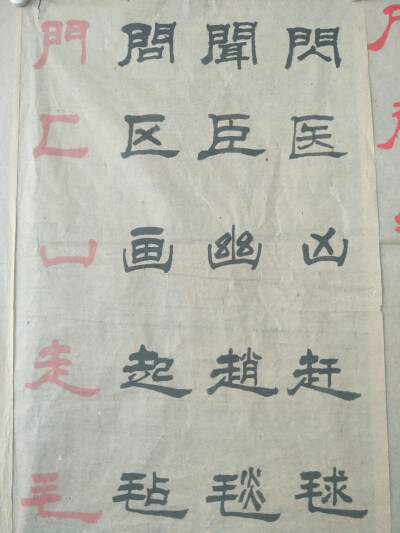 門 問 聞 閃
匚 区 臣 医
凵 画 幽 凶
走 起 趙 赶
毛 毡 毯 球